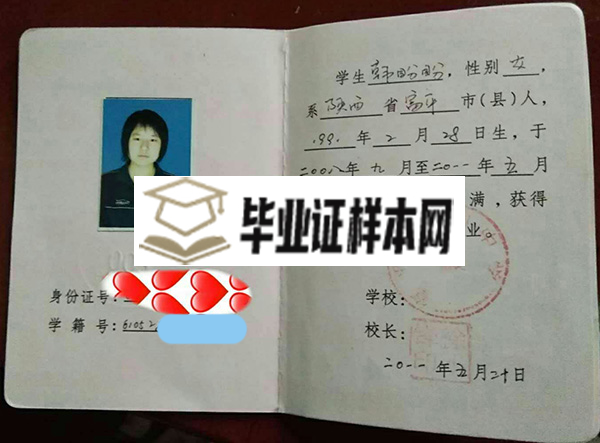 身份证号:
学籍号:61052
毕业证样本网
学生韩盼盼,性别女,
系陕西省富平市(县)人,
1991年2月28日生,于
二00八年九月至二0一一年五月
满,获得
业。
学校:
校长:
二0一一年五月二十日